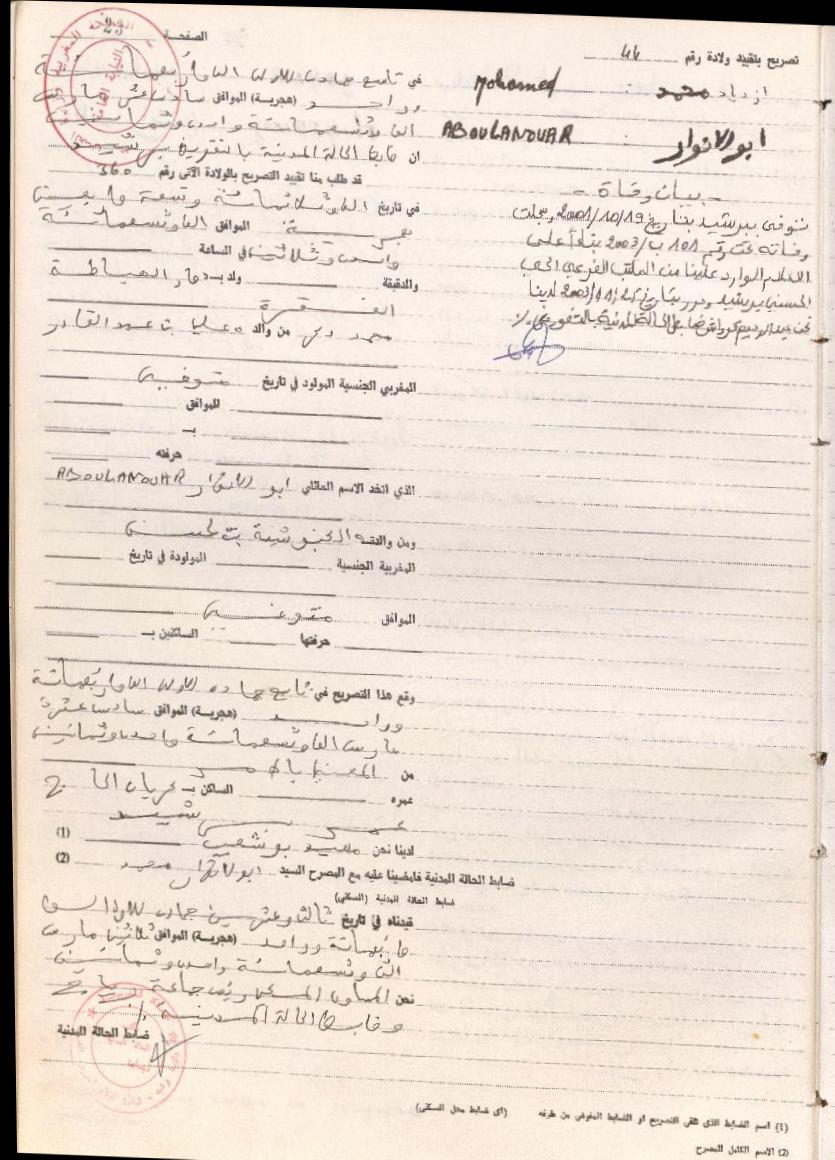 الصفحة 29
تصريح بتقييد ولادة رقم 44
ازدياد محمد : Mohamed
ابو الانوار : ABOULANOUAR
- بيان وفاة -
توفي ببرشيد بتاريخ 2001/10/19 وسجلت
وفاته تحت رقم 101 ب/2003 بناءا على
الاعلام الوارد علينا من المكتب الفرعي الحي
الحسني برشيد وحرر بتاريخ 2003/11/21 لدينا
نحن عبد الرحيم ضابط الحالة المدنية بالتفويض
في تاسع جمادى الاولى الف واربعمائة
وواحد (هجرية) الموافق سادس عشر مارس
الف وتسعمائة واحد وثمانين
ان ضابط الحالة المدنية بالتفويض برشيد
قد طلب منا تقييد التصريح بالولادة الآتي رقم 360
في تاريخ الف وثلاثمائة وتسعة واربعين
هجرية الموافق الف وتسعمائة
واحد وثلاثين في الساعة
والدقيقة ولد بـ دوار الصياطة
الفقرة
محمد من والده علي بن عبد القادر
المغربي الجنسية المولود في تاريخ متوفى
الموافق
بـ
حرفته
الذي اتخد الاسم العائلي ابو الانوار ABOULANOUAR
ومن والدته بنت لحسن
المغربية الجنسية المولودة في تاريخ
الموافق متوفية
حرفتها الساكنين بـ
وقع هذا التصريح في تاسع جمادى الاولى الف واربعمائة
وواحد (هجرية) الموافق سادس عشرة
مارس الف وتسعمائة واحد وثمانين
من المعني بالامر
عمره الساكن بـ
لدينا نحن سعيد بوشعيب (1)
ضابط الحالة المدنية فامضينا عليه مع المصرح السيد ابو الانوار محمد (2)
ضابط الحالة المدنية (السكنى)
قيدناه في تاريخ ثالث وعشرين جمادى الاولى الف
واربعمائة وواحد (هجرية) الموافق ثلاثين مارس
الف وتسعمائة واحد وثمانين
نحن رئيس جماعة
وضابط الحالة المدنية
ضابط الحالة المدنية
(1) اسم الضابط الذي تلقى التصريح او الضابط المفوض من طرفه (أي ضابط محل السكنى)
(2) الاسم الكامل للمصرح